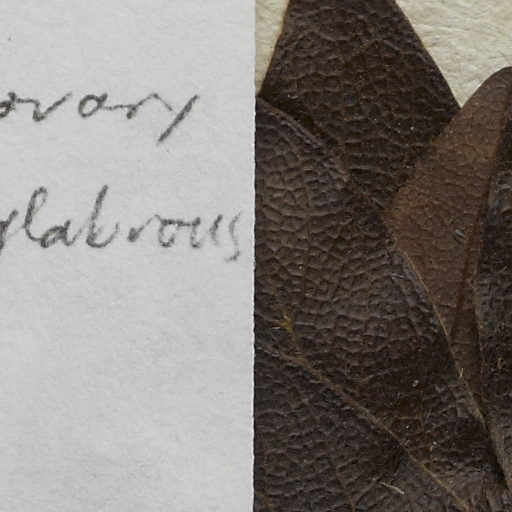 ovary
glabrous